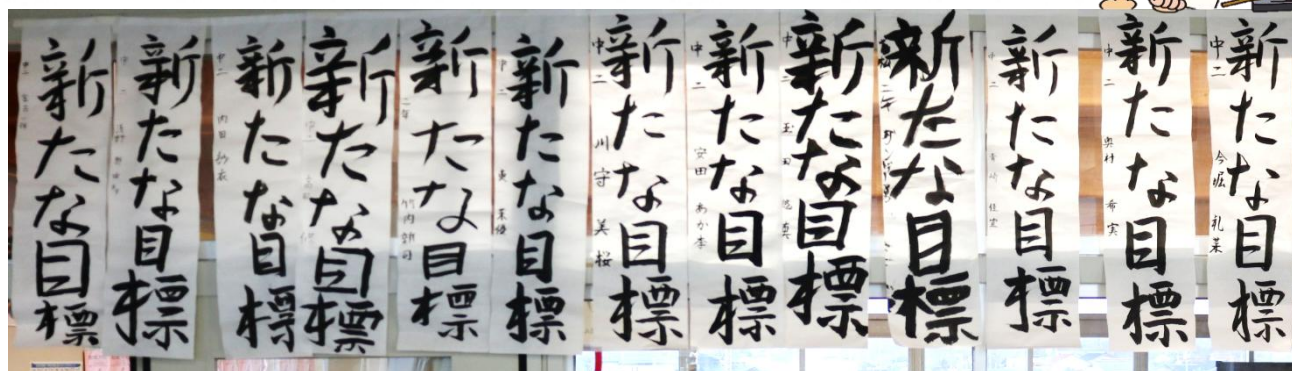 新たな目標
中二 今堀 礼菜
新たな目標
中二 奥村 希実
新たな目標
中二
新たな目標
二年
新たな目標
中二 玉田
新たな目標
中二 安田 あか李
新たな目標
中二 川守 美桜
新たな目標
中二 東
新たな目標
二年 竹内
新たな目標
新たな目標
中二 内田 紗衣
新たな目標
新たな目標